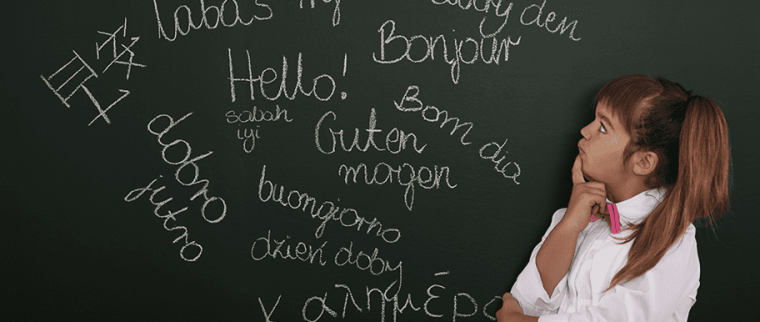 Labas
dobrý den
Bonjour
Hello!
sabah
iyi
Bom dia
Guten
morgen
dobro
jutro
buongiorno
dzień doby
καλημέρα